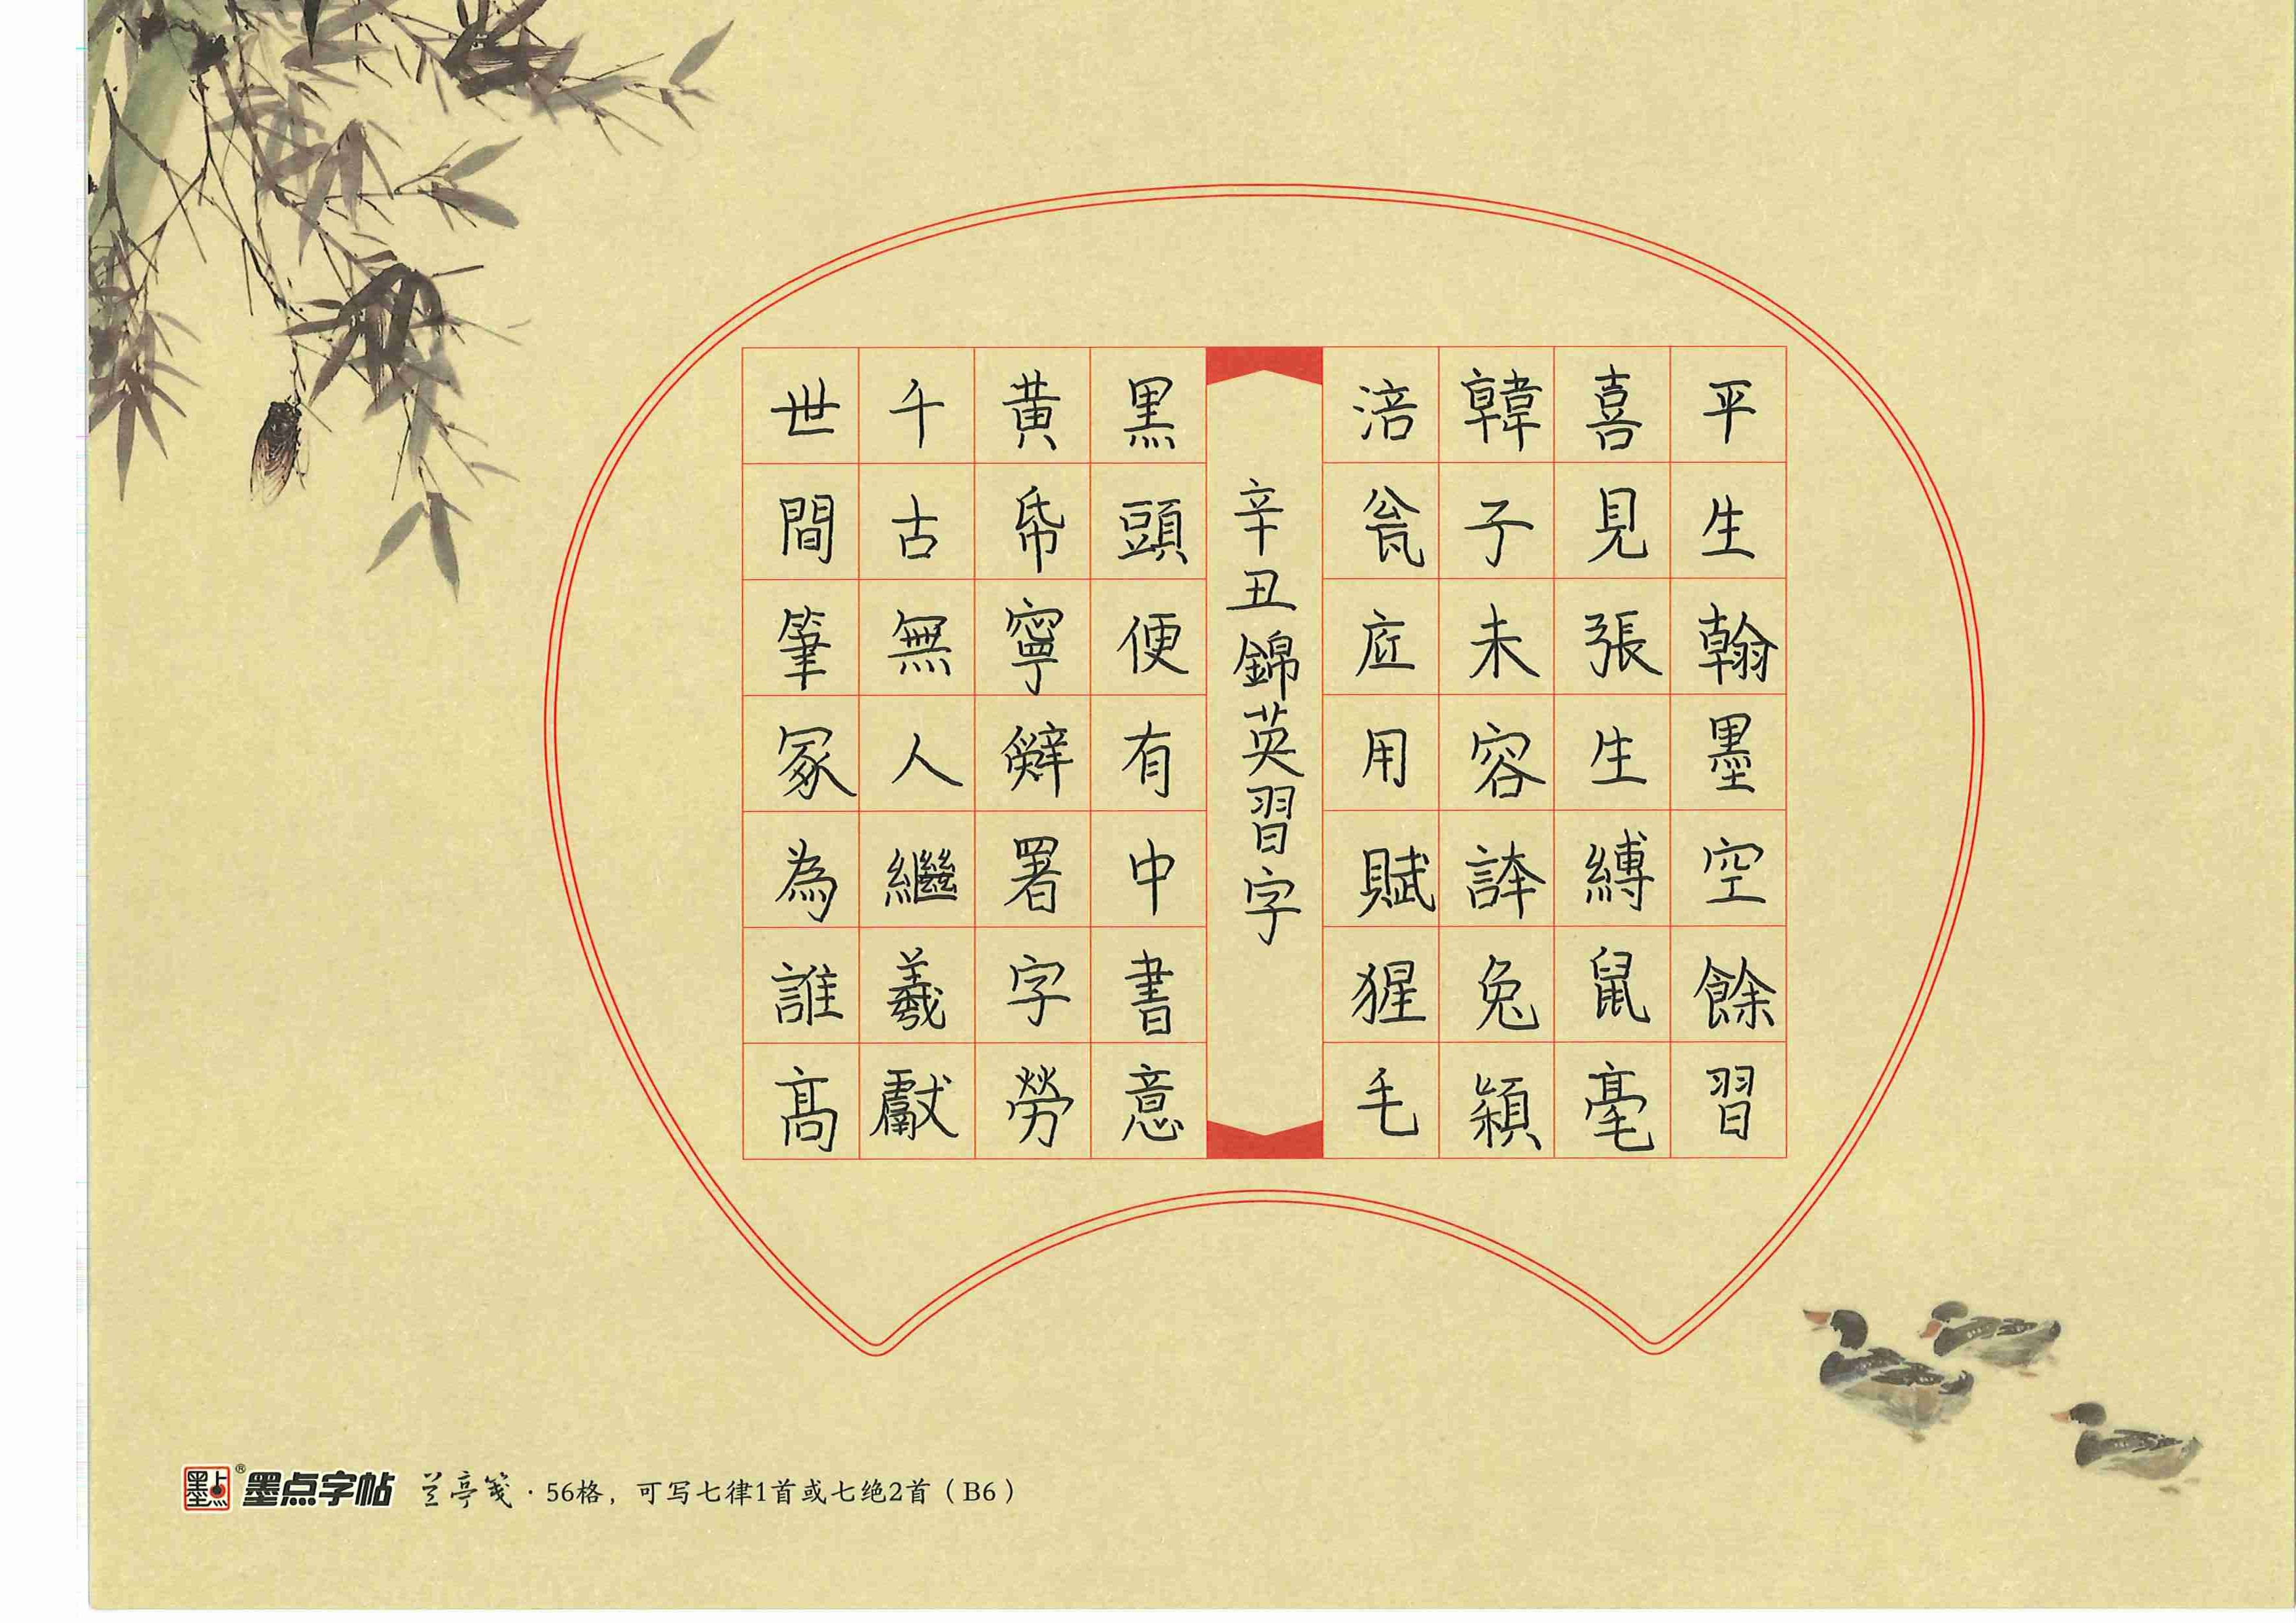 平生翰墨空餘習
喜見張生縛鼠毫
韓子未容誇兔穎
涪瓮底用賦猩毛
辛丑錦英習字
黑頭便有中書意
黃帋寧辭署字勞
千古無人繼羲獻
世間筆冢為誰高
墨点®墨点字帖 兰亭笺·56格，可写七律1首或七绝2首（B6）